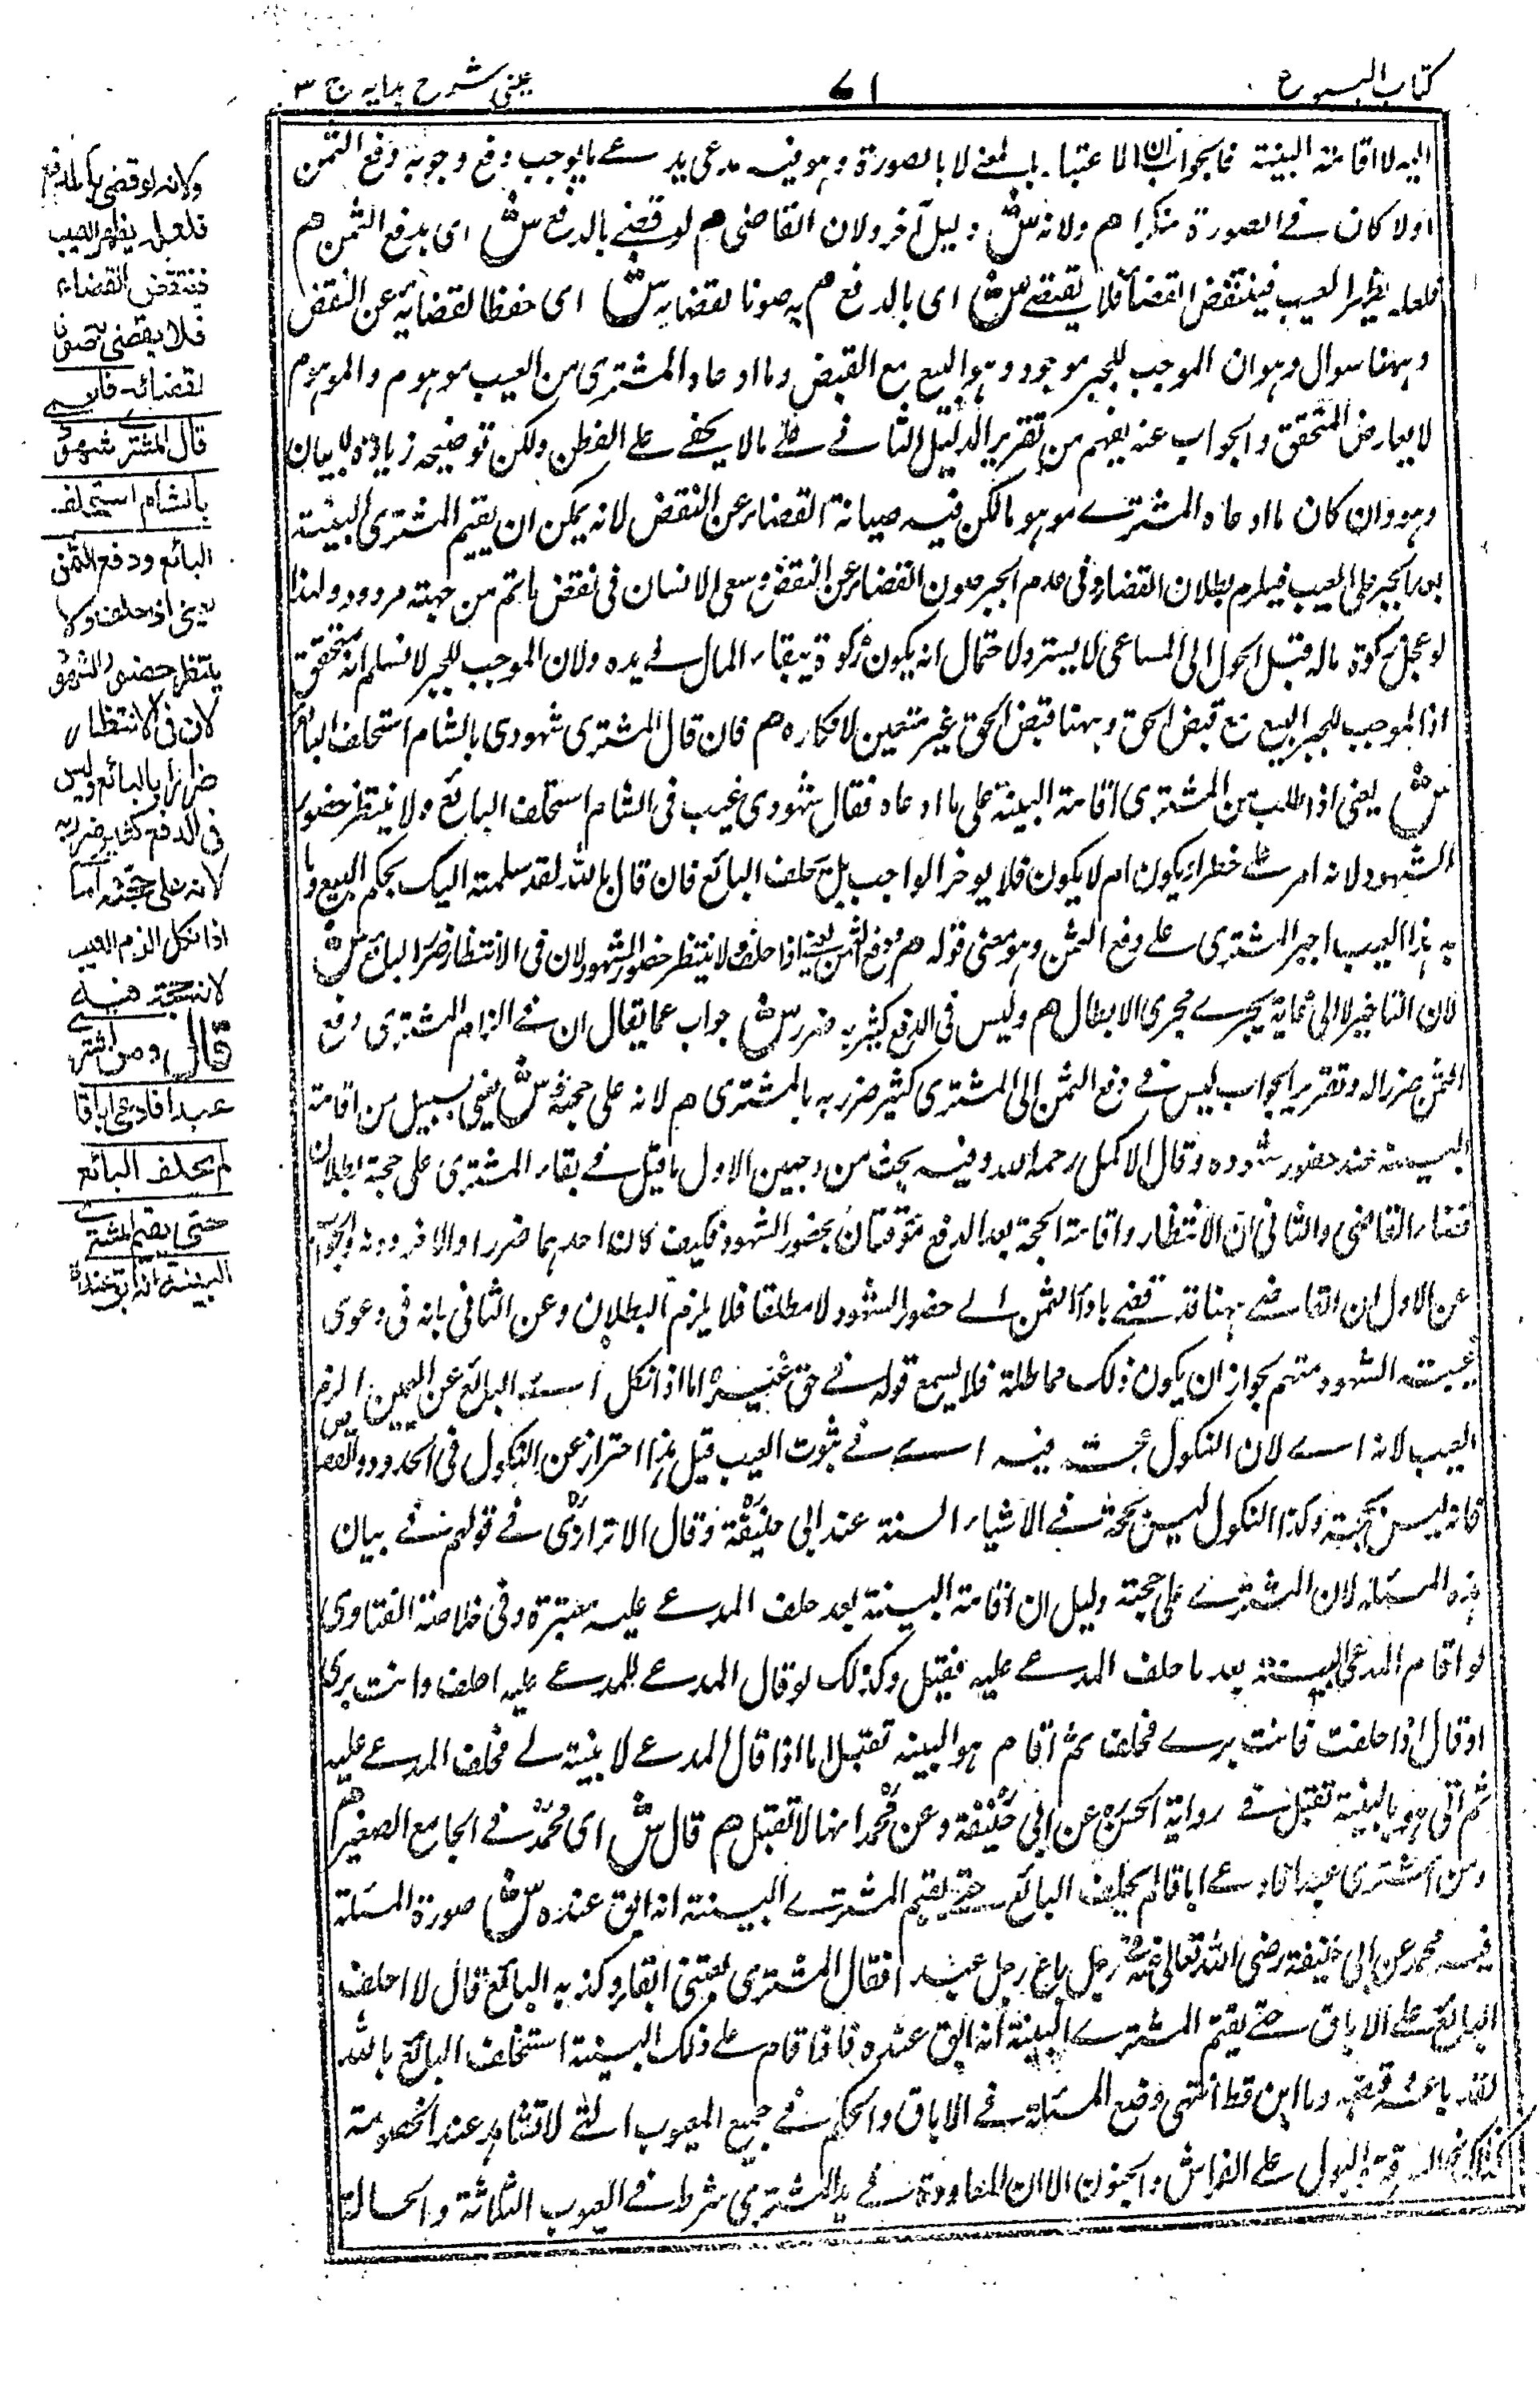 كتاب البيوع
٧١
عيني شرح هدايه ج ٣
اليه لا اقامة البينة فالجواب ان الاعتبار للمعنى لا بالصورة وهو فيه مدعى يدعى ما يوجب دفع وجوبه دفع الثمن
اولا كان فى الصورة منكرا هم ولانه ش دليل آخر ولان القاضى هم لو قضى بالدفع ش اى بدفع الثمن هم
فلعله يظهر العيب فينتقض القضاء فلا يقضى ش اى بالدفع هم به صونا لقضائه ش اى حفظا لقضائه عن النقض
وههنا سوال وهو ان الموجب للجبر موجود وهو البيع مع القبض وما ادعاه المشترى من العيب موهوم والموهوم
لا يعارض المتحقق والجواب عنه يفهم من تقرير الدليل الثانى على مالا يخفى على الفطن ولكن توضيحه زيادة لبيان
وهو وان كان ما ادعاه المشترى موهوما لكن فيه صيانة القضاء عن النقض لانه يمكن ان يقيم المشترى البينة
بعد الجبر على العيب فيلزم بطلان القضاء وفى عدم الجبر صون القضاء عن النقض وسعى الانسان فى نقض ما تم من جهته مردود ولهذا
لو عجل زكوة ماله قبل الحول الى الساعى لا يسترد لاحتمال انه يكون زكوة ببقاء المال فى يده ولان الموجب للجبر لا نسلم انه متحقق
اذ الموجب للجبر البيع مع قبض الحق وههنا قبض الحق غير متعين لانكاره هم فان قال المشترى شهودى بالشام استحلف البائع
ش يعنى اذا طلب من المشترى اقامة البينة على ما ادعاه فقال شهودى غيب فى الشام استحلف البائع ولا ينتظر حضور
الشهود لانه امر على خطر ان يكون ام لا يكون فلا يوخر الواجب بل حلف البائع فان قال بالله لقد سلمته اليك بحكم البيع وما
به هذا العيب اجبر المشترى على دفع الثمن وهو معنى قوله هم ودفع الثمن يعنى اذا حلف ولا ينتظر حضور الشهود لان فى الانتظار ضرر البائع ش
لان التاخير لا الى غاية يجرى مجرى الابطال هم وليس فى الدفع كثير به ضرر ش جواب عما يقال ان فى الزام المشترى دفع
الثمن ضرر اله وتقرير الجواب ليس فى دفع الثمن الى المشترى كثير ضرر به بالمشترى هم لانه على حجته ش يعنى بسبيل من اقامة
البينة عند حضور شهوده وقال الاكمل رحمه الله وفيه بحث من وجهين الاول ما قيل فى بقاء المشترى على حجة بطلان
قضاء القاضى والثانى ان الانتظار واقامة الحجة بعد الدفع موقوتان بحضور الشهود فكيف كان احدهما ضررا والاخر دونه والجواب
عن الاول ان القاضى ههنا قد قضى باداء الثمن الى حضور الشهود لا مطلقا فلا يلزم البطلان وعن الثانى بانه فى دعوى
غيبة الشهود متهم بجواز ان يكون ذلك مماطلة فلا يسمع قوله فى حق غيره اما اذا نكل اى البائع عن اليمين الزم
العيب لانه اى لان النكول حجة فيه اى فى ثبوت العيب قيل هذا احتراز عن النكول فى الحدود والقصاص
فانه ليس بحجة وكذا النكول ليس بحجة فى الاشياء الستة عند ابى حنيفة وقال الاترازى فى قولهم فى بيان
هذه المسئلة لان المشترى على حجته دليل ان اقامة البينة بعد حلف المدعى عليه معتبرة وفى خلاصة الفتاوى
لو اقام المدعى البينة بعد ما حلف المدعى عليه فيقبل وكذلك لو قال المدعى للمدعى عليه احلف وانت برى
او قال اذا حلفت فانت برى فحلف ثم اقام هو البينة تقبل اما اذا قال المدعى لا بينة لى فحلف المدعى عليه
ثم اتى هو بالبينة تقبل فى رواية الحسن عن ابى حنيفة وعن محمد انها لا تقبل هم قال ش اى محمد فى الجامع الصغير هم
ومن اشترى عبدا فادعى اباقا لم يحلف البائع حتى يقيم المشترى البينة انه ابق عنده ش صورة المسئلة
فيه محمد عن ابى حنيفة رضى الله تعالى عنه رجل باع رجل عبدا فقال المشترى بعتنى ابقا وكذبه البائع قال لا احلف
البائع على الاباق حتى يقيم المشترى البينة انه ابق عنده فاذا اقام على ذلك البينة استحلف البائع بالله
لقد باعه وقبضه وما ابق قط انتهى وضع المسئلة فى الاباق والحكم فى جميع العيوب التى لا تشاهد عند الخصومة
كذلك نحو السرقة والبول على الفراش والجنون الا ان المعاودة فى يد المشترى شرط فى العيوب الثلاثة والحالة
ولانه لو قضى بالدفع
فلعله يظهر العيب
فينتقض القضاء
فلا يقضى به صونا
لقضائه فان
قال المشترى شهودى
بالشام استحلف
البائع ودفع الثمن
يعنى اذا حلف ولا
ينتظر حضور الشهود
لان فى الانتظار
ضررا بالبائع وليس
فى الدفع كثير ضرر به
لانه على حجته اما
اذا نكل الزم العيب
لانه حجة فيه
قال ومن اشترى
عبدا فادعى اباقا
لم يحلف البائع
حتى يقيم المشترى
البينة انه ابق عنده